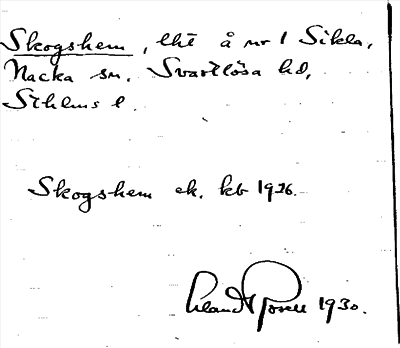 Skogshem, lht å nr 1 Sikla,
Nacka sn. Svartlösa hd,
Sthlms l.
Skogshem ek. kb 1926.
1930.